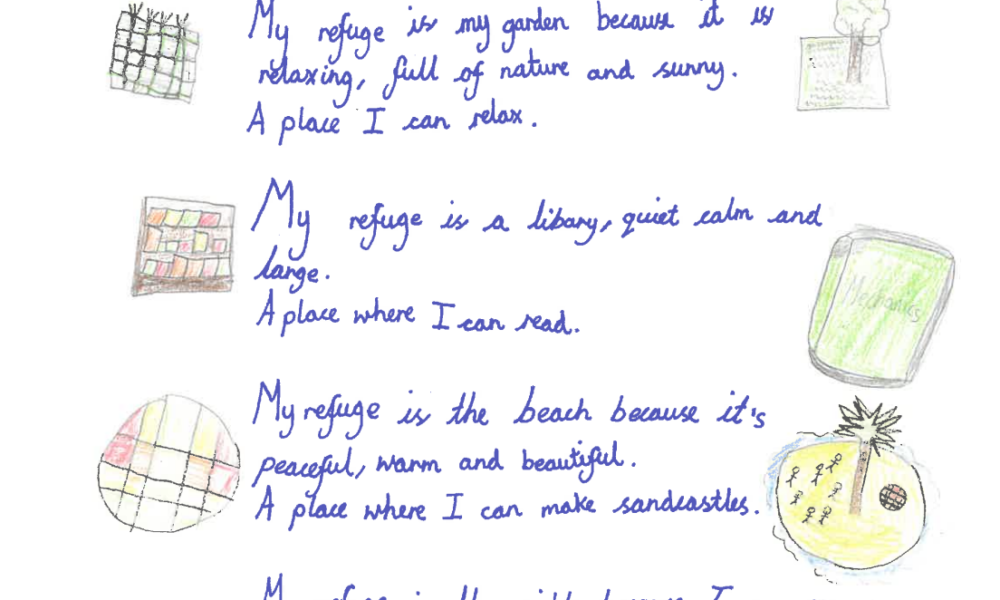 My refuge is my garden because it is
relaxing, full of nature and sunny.
A place I can relax.
My refuge is a libary, quiet calm and
large.
A place where I can read.
Mechanics
My refuge is the beach because it's
peaceful, warm and beautiful.
A place where I can make sandcastles.
My refuge is the because I